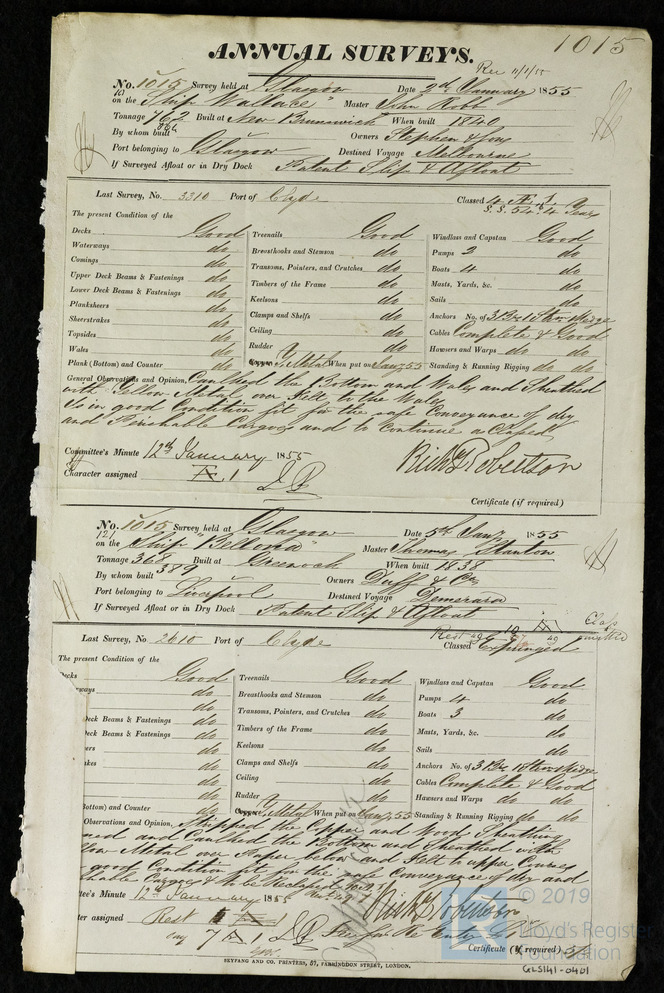 1015
ANNUAL SURVEYS.
Rec 11/1/55
No. 1015 Survey held at Glasgow Date 2d January 1855
on the Ship "Wallace" Master John Robb
Tonnage 762 Built at New Brunswick When built 1840
By whom built Owners Stephen & Sons
Port belonging to Glasgow Destined Voyage Melbourne
If Surveyed Afloat or in Dry Dock Patent Slip & Afloat
Last Survey, No. 3310 Port of Clyde Classed 4 Æ 1
S.S. 54. 4 Years
The present Condition of the
Decks Good Treenails Good Windlass and Capstan Good
Waterways do Breasthooks and Stemson do Pumps 2 do
Comings do Transoms, Pointers, and Crutches do Boats 4 do
Upper Deck Beams & Fastenings do Timbers of the Frame do Masts, Yards, &c. do
Lower Deck Beams & Fastenings do Keelsons do Sails do
Planksheers do Clamps and Shelfs do Anchors No. of 3 Brs 1 Strm & Kedge
Sheerstrakes do Ceiling do Cables Complete & Good
Topsides do Rudder do Hawsers and Warps do do
Wales do Copper Y Metal When put on Jany 55 Standing & Running Rigging do do
Plank (Bottom) and Counter do
General Observations and Opinion, Caulked the Bottom and Wales and Sheathed
with Yellow Metal over Felt to the Wales
Is in good Condition fit for the safe Conveyance of dry
and Perishable Cargoes and to continue as Classed
Committee's Minute 12th January 1855
Character assigned Æ 1
Richd Robertson
Certificate (if required)
No. 1015 Survey held at Glasgow Date 5th Jany 1855
on the Ship "Bellona" Master Thomas Stanton
Tonnage 368 Built at Greenock When built 1838
389
By whom built Owners Duff & Co
Port belonging to Liverpool Destined Voyage Demerara
If Surveyed Afloat or in Dry Dock Patent Slip & Afloat
Last Survey, No. 2610 Port of Clyde Classed Expunged
The present Condition of the
Decks Good Treenails Good Windlass and Capstan Good
rways do Breasthooks and Stemson do Pumps 4 do
do Transoms, Pointers, and Crutches do Boats 3 do
Deck Beams & Fastenings do Timbers of the Frame do Masts, Yards, &c. do
Deck Beams & Fastenings do Keelsons do Sails do
ers do Clamps and Shelfs do Anchors No. of 3 Brs 1 Strm & Kedge
akes do Ceiling do Cables Complete & Good
do Rudder do Hawsers and Warps do do
do Copper Y Metal When put on Jany 55 Standing & Running Rigging do do
Bottom) and Counter do
Observations and Opinion, Stripped the Copper and Wood Sheathing
and Caulked the Bottom and Sheathed with
llow Metal over Paper below and Felt to upper Courses
good Condition fit for the safe Conveyance of dry and
hable Cargoes & to be Reclassed
tee's Minute 12th January 1855
Richd Robertson
er assigned Rest Æ 1
7 Æ 1
Certificate (if required) 5/
SEYFANG AND CO. PRINTERS, 57, FARRINGDON STREET, LONDON.
© 2019
Lloyd's Register
Foundation
GLS141-0401